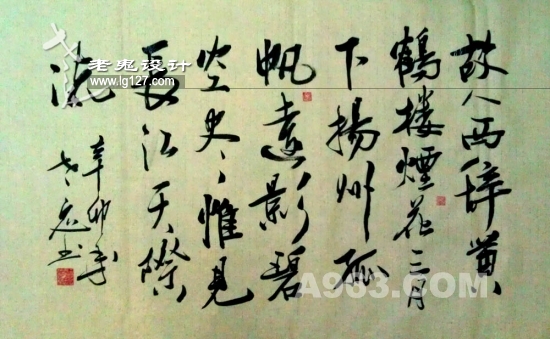 故人西辭黄
鶴樓煙花三月
下揚州孤
帆遠影碧
空尽惟見
長江天際
流
辛卯年
老鬼书
老鬼设计
www.lg127.com
A963.COM